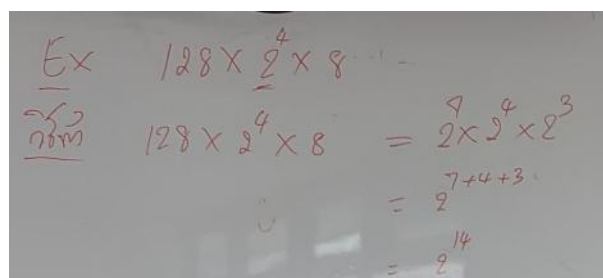 Ex 128 × 2⁴ × 8
วิธีทำ 128 × 2⁴ × 8 = 2⁷ × 2⁴ × 2³
= 2⁷⁺⁴⁺³
= 2¹⁴